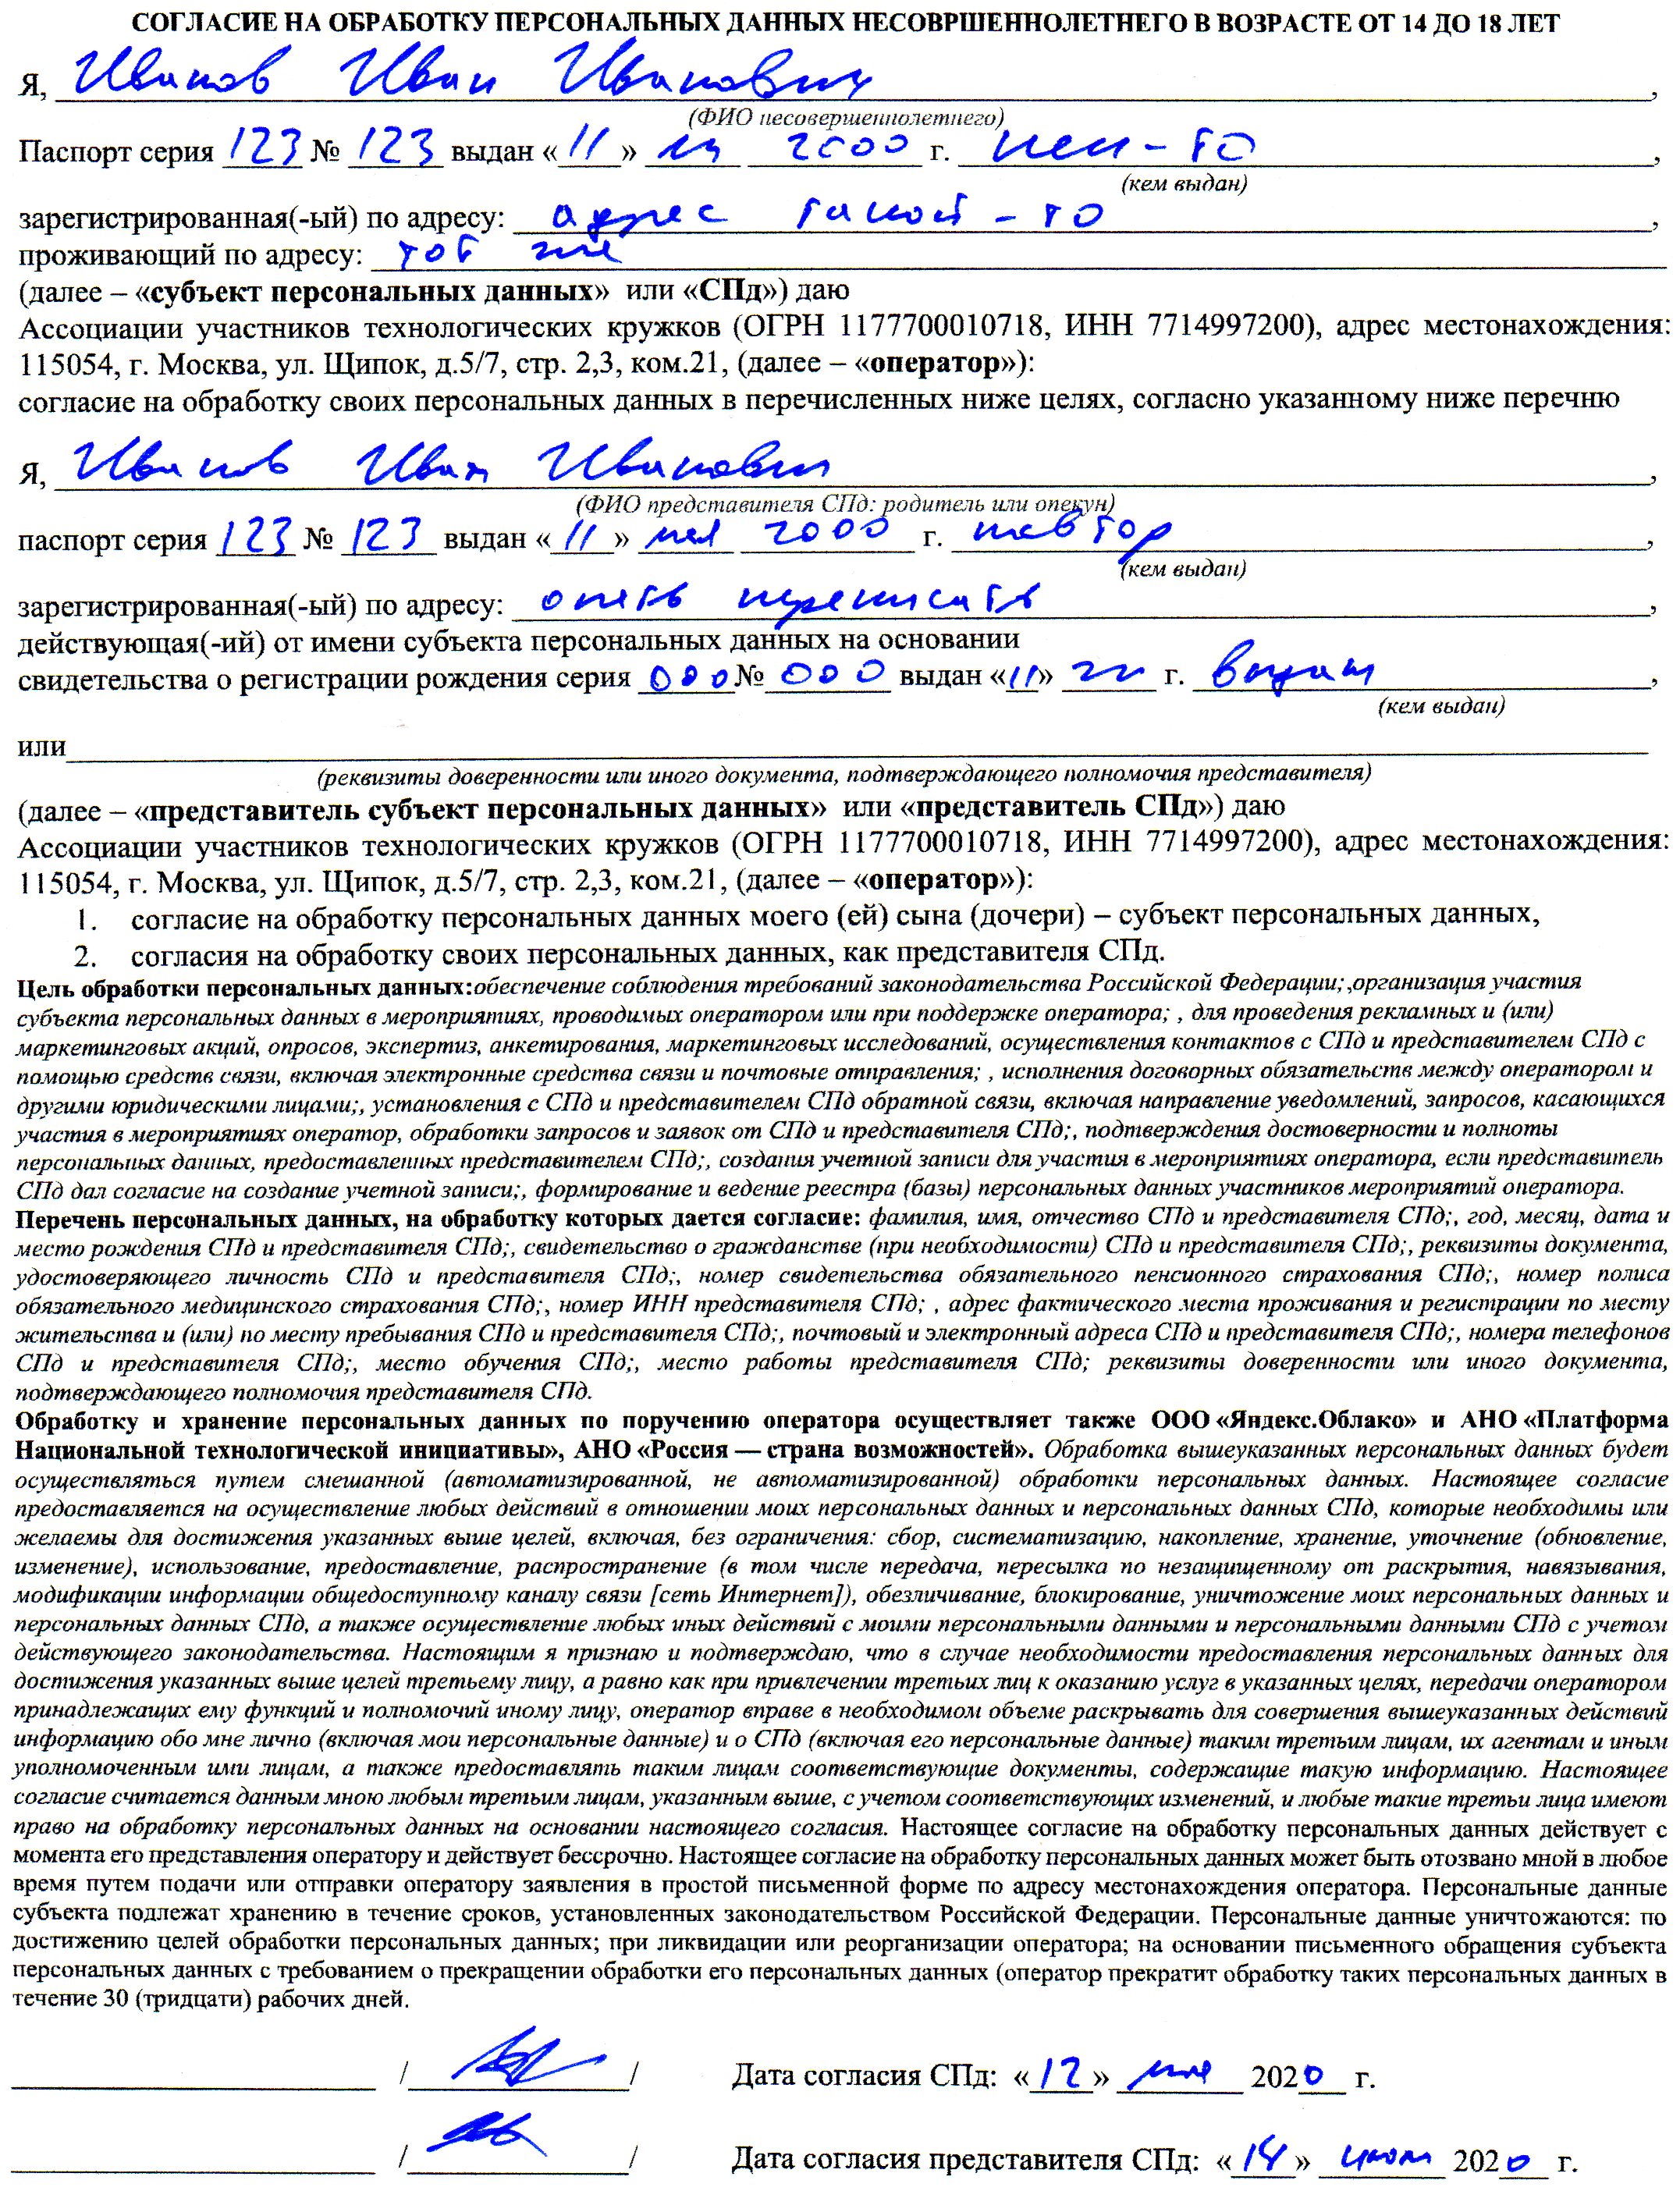 СОГЛАСИЕ НА ОБРАБОТКУ ПЕРСОНАЛЬНЫХ ДАННЫХ НЕСОВРШЕННОЛЕТНЕГО В ВОЗРАСТЕ ОТ 14 ДО 18 ЛЕТ
Я, Иванов Иван Иванович,
(ФИО несовершеннолетнего)
Паспорт серия 123 № 123 выдан «11» 2000 г. кем-то,
(кем выдан)
зарегистрированная(-ый) по адресу: адрес такой-то,
проживающий по адресу: тот же
(далее – «субъект персональных данных» или «СПд») даю
Ассоциации участников технологических кружков (ОГРН 1177700010718, ИНН 7714997200), адрес местонахождения:
115054, г. Москва, ул. Щипок, д.5/7, стр. 2,3, ком.21, (далее – «оператор»):
согласие на обработку своих персональных данных в перечисленных ниже целях, согласно указанному ниже перечню
Я, Иванов Иван Иванович,
(ФИО представителя СПд: родитель или опекун)
паспорт серия 123 № 123 выдан «11» мая 2000 г.,
(кем выдан)
зарегистрированная(-ый) по адресу: опять переписать,
действующая(-ий) от имени субъекта персональных данных на основании
свидетельства о регистрации рождения серия 000 № 000 выдан «11» г. выдан,
(кем выдан)
или
(реквизиты доверенности или иного документа, подтверждающего полномочия представителя)
(далее – «представитель субъект персональных данных» или «представитель СПд») даю
Ассоциации участников технологических кружков (ОГРН 1177700010718, ИНН 7714997200), адрес местонахождения:
115054, г. Москва, ул. Щипок, д.5/7, стр. 2,3, ком.21, (далее – «оператор»):
1. согласие на обработку персональных данных моего (ей) сына (дочери) – субъект персональных данных,
2. согласия на обработку своих персональных данных, как представителя СПд.
Цель обработки персональных данных:обеспечение соблюдения требований законодательства Российской Федерации;,организация участия
субъекта персональных данных в мероприятиях, проводимых оператором или при поддержке оператора; , для проведения рекламных и (или)
маркетинговых акций, опросов, экспертиз, анкетирования, маркетинговых исследований, осуществления контактов с СПд и представителем СПд с
помощью средств связи, включая электронные средства связи и почтовые отправления; , исполнения договорных обязательств между оператором и
другими юридическими лицами;, установления с СПд и представителем СПд обратной связи, включая направление уведомлений, запросов, касающихся
участия в мероприятиях оператор, обработки запросов и заявок от СПд и представителя СПд;, подтверждения достоверности и полноты
персональных данных, предоставленных представителем СПд;, создания учетной записи для участия в мероприятиях оператора, если представитель
СПд дал согласие на создание учетной записи;, формирование и ведение реестра (базы) персональных данных участников мероприятий оператора.
Перечень персональных данных, на обработку которых дается согласие: фамилия, имя, отчество СПд и представителя СПд;, год, месяц, дата и
место рождения СПд и представителя СПд;, свидетельство о гражданстве (при необходимости) СПд и представителя СПд;, реквизиты документа,
удостоверяющего личность СПд и представителя СПд;, номер свидетельства обязательного пенсионного страхования СПд;, номер полиса
обязательного медицинского страхования СПд;, номер ИНН представителя СПд; , адрес фактического места проживания и регистрации по месту
жительства и (или) по месту пребывания СПд и представителя СПд;, почтовый и электронный адреса СПд и представителя СПд;, номера телефонов
СПд и представителя СПд;, место обучения СПд;, место работы представителя СПд; реквизиты доверенности или иного документа,
подтверждающего полномочия представителя СПд.
Обработку и хранение персональных данных по поручению оператора осуществляет также ООО «Яндекс.Облако» и АНО «Платформа
Национальной технологической инициативы», АНО «Россия — страна возможностей». Обработка вышеуказанных персональных данных будет
осуществляться путем смешанной (автоматизированной, не автоматизированной) обработки персональных данных. Настоящее согласие
предоставляется на осуществление любых действий в отношении моих персональных данных и персональных данных СПд, которые необходимы или
желаемы для достижения указанных выше целей, включая, без ограничения: сбор, систематизацию, накопление, хранение, уточнение (обновление,
изменение), использование, предоставление, распространение (в том числе передача, пересылка по незащищенному от раскрытия, навязывания,
модификации информации общедоступному каналу связи [сеть Интернет]), обезличивание, блокирование, уничтожение моих персональных данных и
персональных данных СПд, а также осуществление любых иных действий с моими персональными данными и персональными данными СПд с учетом
действующего законодательства. Настоящим я признаю и подтверждаю, что в случае необходимости предоставления персональных данных для
достижения указанных выше целей третьему лицу, а равно как при привлечении третьих лиц к оказанию услуг в указанных целях, передачи оператором
принадлежащих ему функций и полномочий иному лицу, оператор вправе в необходимом объеме раскрывать для совершения вышеуказанных действий
информацию обо мне лично (включая мои персональные данные) и о СПд (включая его персональные данные) таким третьим лицам, их агентам и иным
уполномоченным ими лицам, а также предоставлять таким лицам соответствующие документы, содержащие такую информацию. Настоящее
согласие считается данным мною любым третьим лицам, указанным выше, с учетом соответствующих изменений, и любые такие третьи лица имеют
право на обработку персональных данных на основании настоящего согласия. Настоящее согласие на обработку персональных данных действует с
момента его представления оператору и действует бессрочно. Настоящее согласие на обработку персональных данных может быть отозвано мной в любое
время путем подачи или отправки оператору заявления в простой письменной форме по адресу местонахождения оператора. Персональные данные
субъекта подлежат хранению в течение сроков, установленных законодательством Российской Федерации. Персональные данные уничтожаются: по
достижению целей обработки персональных данных; при ликвидации или реорганизации оператора; на основании письменного обращения субъекта
персональных данных с требованием о прекращении обработки его персональных данных (оператор прекратит обработку таких персональных данных в
течение 30 (тридцати) рабочих дней.
/ / Дата согласия СПд: «12» мая 2020 г.
/ / Дата согласия представителя СПд: «14» 2020 г.